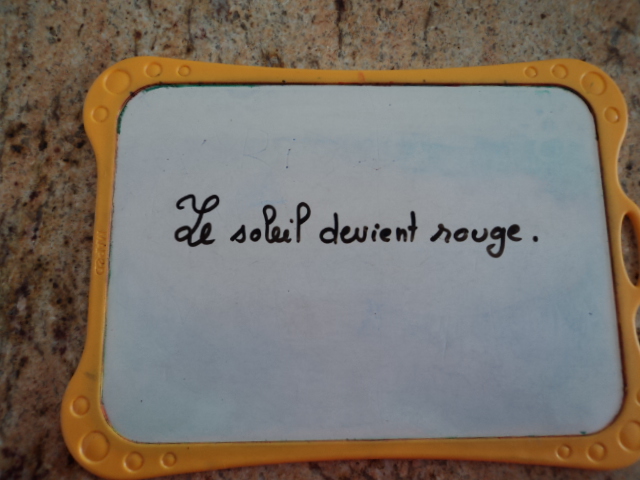 Le soleil devient rouge.